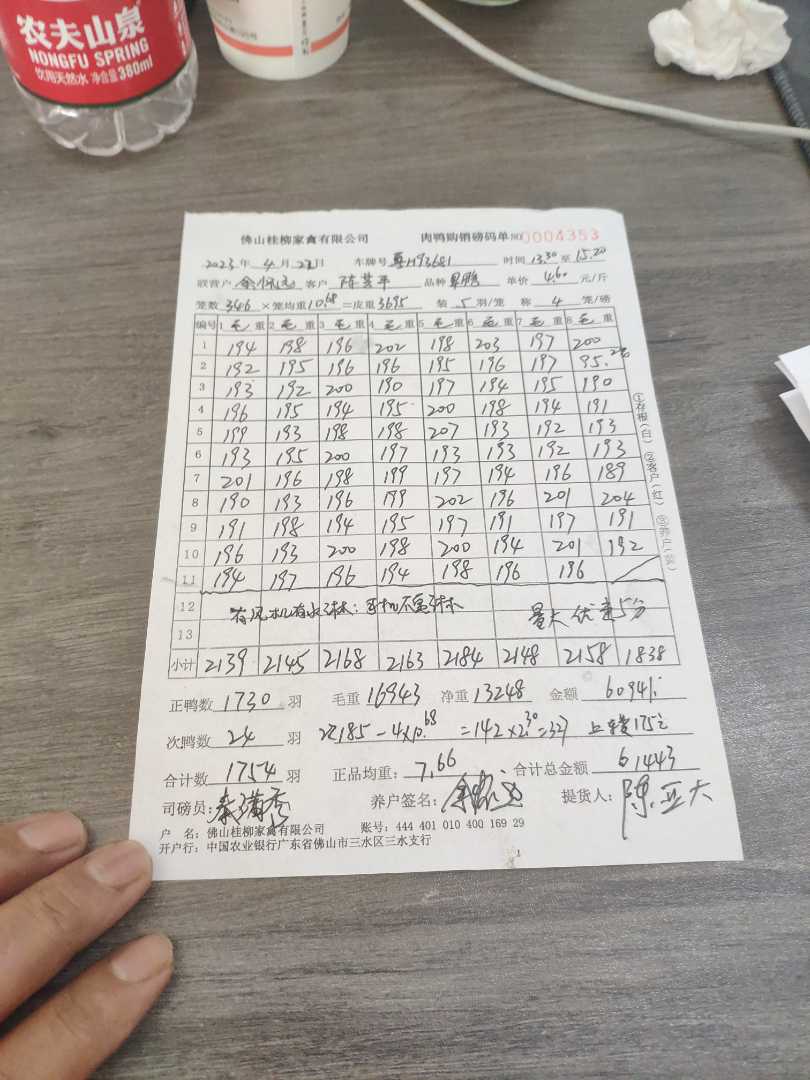 农夫山泉
NONGFU SPRING
饮用天然水 净含量380ml
佛山桂柳家禽有限公司 肉鸭购销磅码单 NO 0004353
2023年 4月 23日 车牌号 粤H93681 时间 13.30 至 15.20
联营户 客户 陈 平 品种 鹏 单价 4.60 元/斤
笼数 346 ×笼均重 10.68 =皮重 3695 装 5 羽/笼 称 4 笼/磅
编号 1 毛 重 2 毛 重 3 毛 重 4 毛 重 5 毛 重 6 毛 重 7 毛 重 8 毛 重
1 194 198 196 202 198 203 197 200
2 192 195 196 196 195 196 197 95.
3 193 192 200 190 197 194 195 190
4 196 195 194 195 200 198 194 191
5 199 193 198 198 207 193 192 193
6 193 195 200 197 193 193 192 193
7 201 196 198 199 197 194 196 189
8 190 193 196 199 202 196 201 204
9 191 198 194 195 197 191 197 191
10 196 193 200 198 200 194 201 192
11 194 197 196 194 198 196 196
12 有风机有水淋: 司机不 淋 量大优惠5分
13
小计 2139 2145 2168 2163 2184 2148 2158 1838
①存根(白) ②客户(红) ③养户(黄)
正鸭数 1730 羽 毛重 16943 净重 13248 金额 60941
次鸭数 24 羽 次185-4×10.68 =142×2.30=327 上 175元
合计数 1754 羽 正品均重: 7.66 合计总金额 61443
司磅员: 秦 养户签名: 提货人: 陈亚大
户 名: 佛山桂柳家禽有限公司 账号: 444 401 010 400 169 29
开户行: 中国农业银行广东省佛山市三水区三水支行